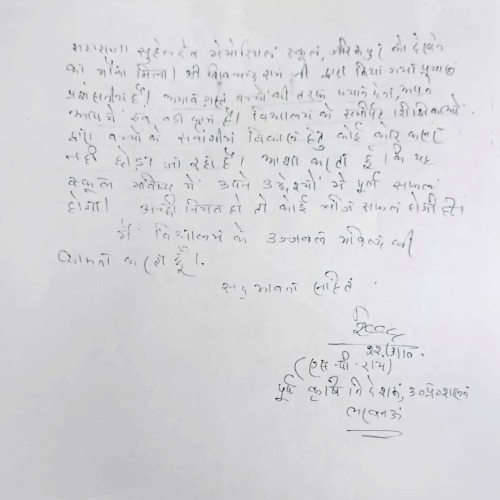 महाराजा सुहेलदेव मेमोरियल स्कूल, गोरखपुर को देखने
का मौका मिला। श्री शिवचन्द्र राम जी द्वारा किया गया प्रयास
प्रशंसनीय है। अभाव ग्रस्त बच्चों की तरफ ध्यान देना, अपने
आप में एक बड़ा काम है। विद्यालय के समर्पित शिक्षिकाओं
द्वारा बच्चों के सर्वांगीण विकास हेतु कोई कोर कसर
नहीं छोड़ा जा रहा है। आशा करता हूँ कि यह
स्कूल भविष्य में अपने उद्देश्यों में पूर्ण सफल
होगा। अच्छी नियत हो तो कोई चीज सफल होगी ही।
मैं विद्यालय के उज्जवल भविष्य की
कामना करता हूँ।
सद्भावना सहित
22/3/10.
(एस. पी. राय)
पूर्व कृषि निदेशक, उ०प्र०शासन
लखनऊ